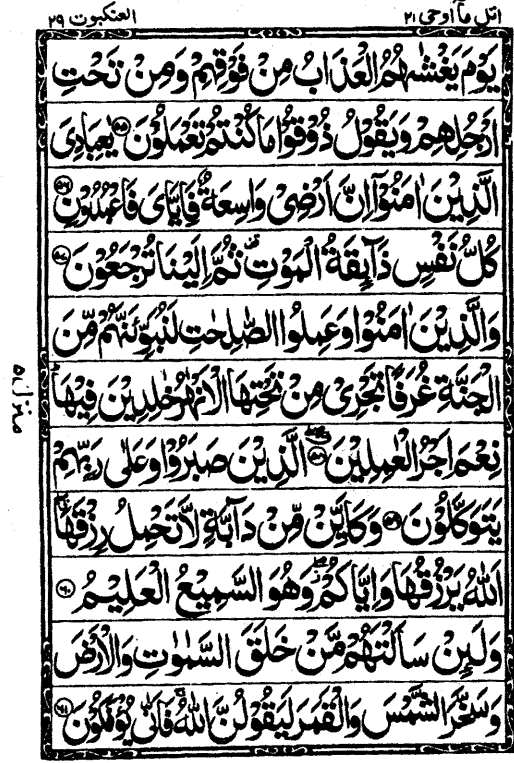 اتل ما اوحی ۲۱
العنکبوت ۲۹
يَوْمَ يَغْشٰىهُمُ الْعَذَابُ مِنْ فَوْقِهِمْ وَمِنْ تَحْتِ
اَرْجُلِهِمْ وَيَقُوْلُ ذُوْقُوْا مَا كُنْتُمْ تَعْمَلُوْنَ ۝۵۵ يٰعِبَادِيَ
الَّذِيْنَ اٰمَنُوْۤا اِنَّ اَرْضِيْ وَاسِعَةٌ فَاِيَّايَ فَاعْبُدُوْنِ ۝۵۶
كُلُّ نَفْسٍ ذَآىِٕقَةُ الْمَوْتِ ۫ ثُمَّ اِلَيْنَا تُرْجَعُوْنَ ۝۵۷
وَالَّذِيْنَ اٰمَنُوْا وَعَمِلُوا الصّٰلِحٰتِ لَنُبَوِّئَنَّهُمْ مِّنَ
الْجَنَّةِ غُرَفًا تَجْرِيْ مِنْ تَحْتِهَا الْاَنْهٰرُ خٰلِدِيْنَ فِيْهَا ؕ
نِعْمَ اَجْرُ الْعٰمِلِيْنَ ۝۵۸ الَّذِيْنَ صَبَرُوْا وَعَلٰى رَبِّهِمْ
يَتَوَكَّلُوْنَ ۝۵۹ وَكَاَيِّنْ مِّنْ دَآبَّةٍ لَّا تَحْمِلُ رِزْقَهَا
اَللّٰهُ يَرْزُقُهَا وَاِيَّاكُمْ ۖ وَهُوَ السَّمِيْعُ الْعَلِيْمُ ۝۶۰
وَلَىِٕنْ سَاَلْتَهُمْ مَّنْ خَلَقَ السَّمٰوٰتِ وَالْاَرْضَ
وَسَخَّرَ الشَّمْسَ وَالْقَمَرَ لَيَقُوْلُنَّ اللّٰهُ ۚ فَاَنّٰى يُؤْفَكُوْنَ ۝۶۱
منزل ۵